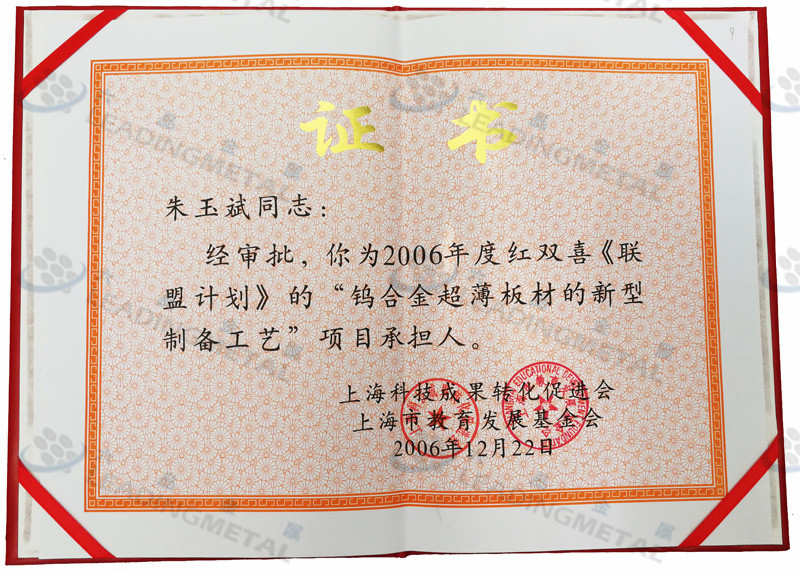 证书
朱玉斌同志：
经审批，你为2006年度红双喜《联
盟计划》的“钨合金超薄板材的新型
制备工艺”项目承担人。
上海科技成果转化促进会
上海市教育发展基金会
2006年12月22日
LEADINGMETAL
LEADINGMETAL
LEADINGMETAL
LEADINGMETAL
LEADINGMETAL
LEADINGMETAL